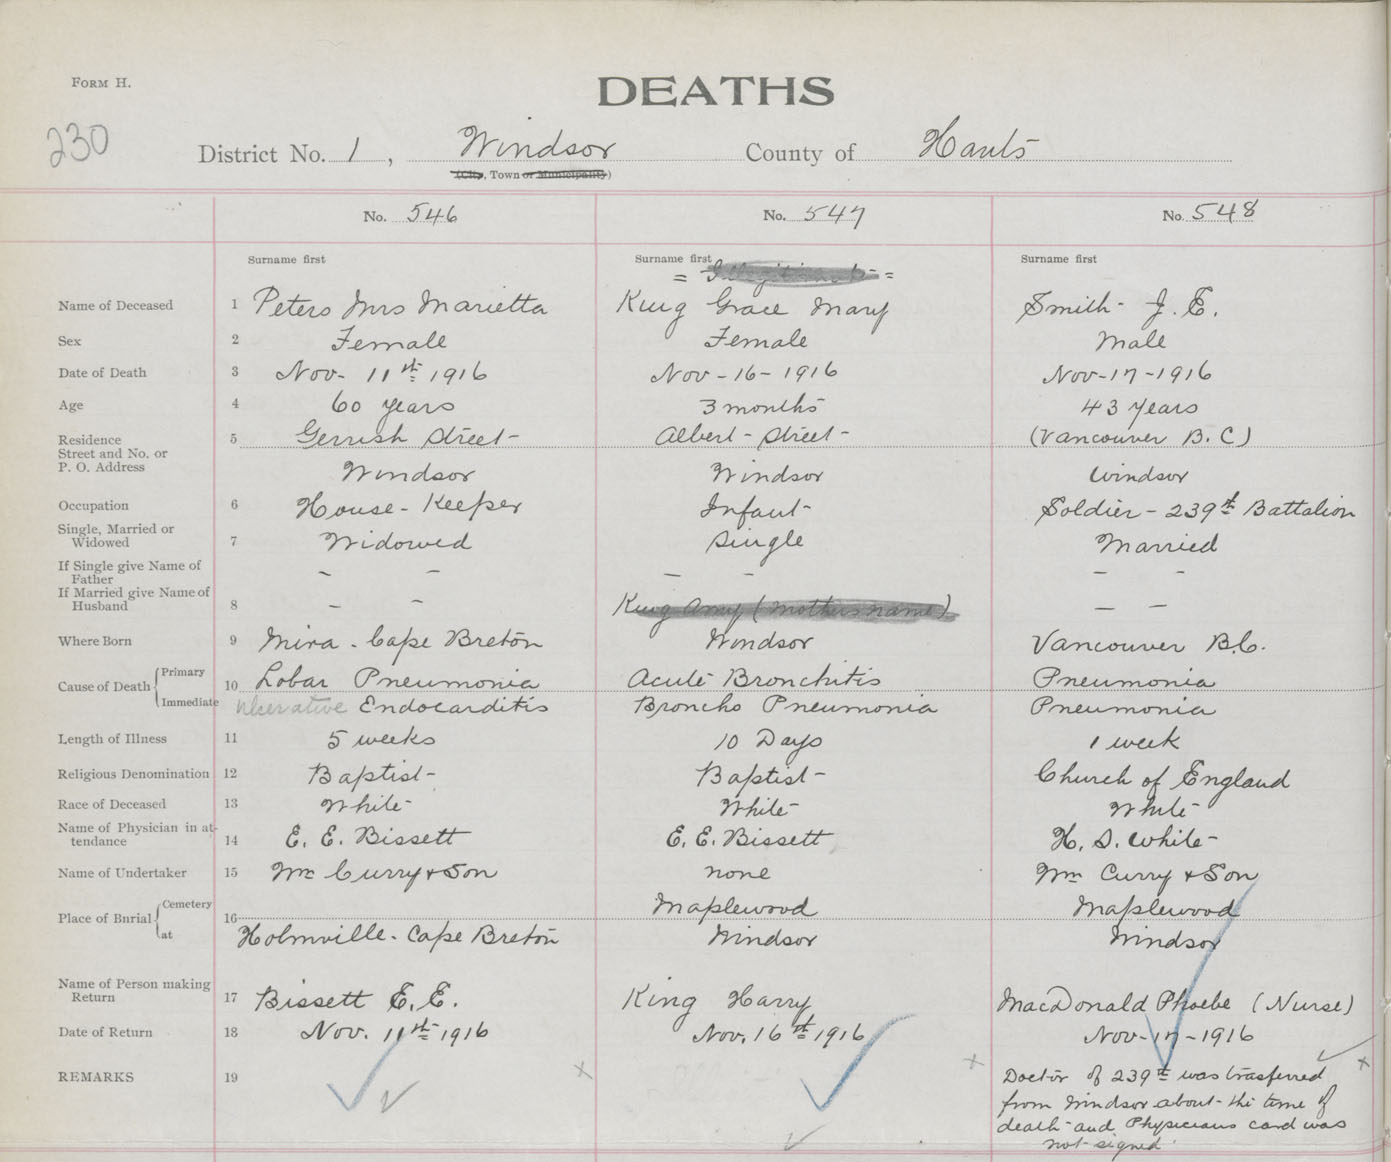 FORM H.
DEATHS
230
District No. 1, Windsor County of Hants
(City, Town or Municipality)
No. 546 No. 547 No. 548
Surname first Surname first Surname first
= Illegitimate =
Name of Deceased 1 Peters Mrs Marietta King Grace Mary Smith - J. E.
Sex 2 Female Female Male
Date of Death 3 Nov - 11th 1916 Nov - 16 - 1916 Nov - 17 - 1916
Age 4 60 years 3 months 43 years
Residence 5 Gerrish Street - Albert - Street - (Vancouver B.C)
Street and No. or
P. O. Address Windsor Windsor Windsor
Occupation 6 House - Keeper Infant - Soldier - 239th Battalion
Single, Married or
Widowed 7 Widowed Single Married
If Single give Name of
Father – – – – – –
If Married give Name of
Husband 8 – – King Amy (Mothers name) – –
Where Born 9 Mira - Cape Breton Windsor Vancouver B.C.
Cause of Death Primary 10 Lobar Pneumonia Acute Bronchitis Pneumonia
Immediate Ulcerative Endocarditis Broncho Pneumonia Pneumonia
Length of Illness 11 5 weeks 10 Days 1 week
Religious Denomination 12 Baptist - Baptist - Church of England
Race of Deceased 13 White White White
Name of Physician in at-
tendance 14 E. E. Bissett E. E. Bissett H. S. White -
Name of Undertaker 15 Wm Curry & Son none Wm Curry & Son
Place of Burial Cemetery 16 Maplewood Maplewood
at Holmville - Cape Breton Windsor Windsor
Name of Person making
Return 17 Bissett E. E. King Harry MacDonald Phoebe (Nurse)
Date of Return 18 Nov. 11th 1916 Nov. 16th 1916 Nov - 17 - 1916
REMARKS 19 Doctor of 239th was trasferred
from Windsor about - the time of
death - and Physicians card was
not signed